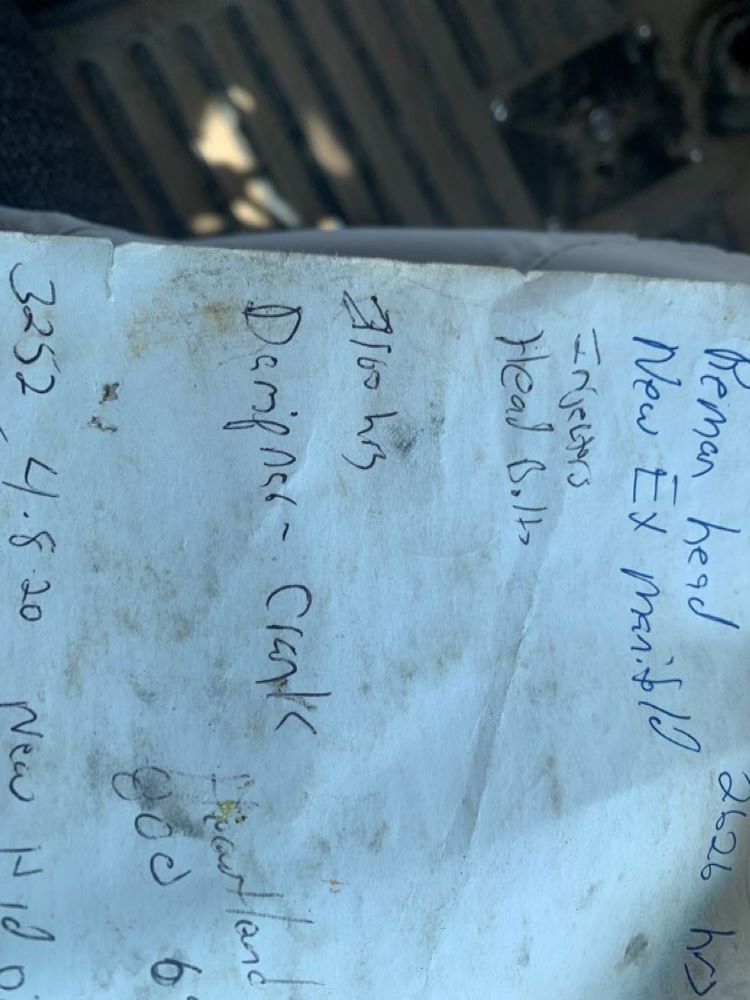 Reman head 2626 hrs
New Ex Manifold
Injectors
Head Bolts
3160 hrs
Dampner - Crank
Heartland
3252 4.8.20 New Hyd